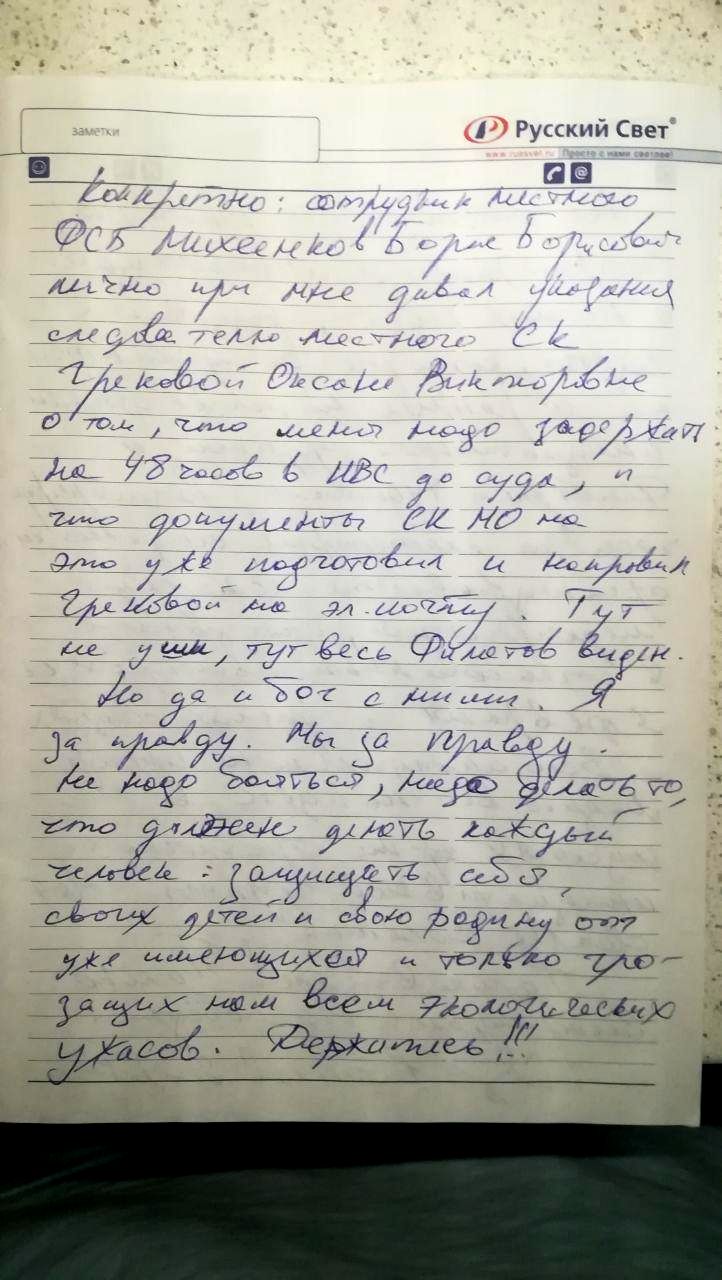 заметки
Русский Свет®
www.russvet.ru Просто с нами светлее!
Конкретно: сотрудник местного
ФСБ Михеенков Борис Борисович
лично при мне давал указания
следователю местного СК
Грековой Оксане Викторовне
о том, что меня надо задержать
на 48 часов в ИВС до суда, и
что документы СК МО на
это уже подготовил и направил
Грековой на эл. почту. Тут
не уши, тут весь Филатов виден.
Но да и бог с ними. Я
за правду. Мы за правду.
Не надо бояться, надо делать то,
что должен делать каждый
человек: защищать себя,
своих детей и свою родину от
уже имеющихся и только гро-
зящих нам всем экологических
ужасов. Держитесь!!!